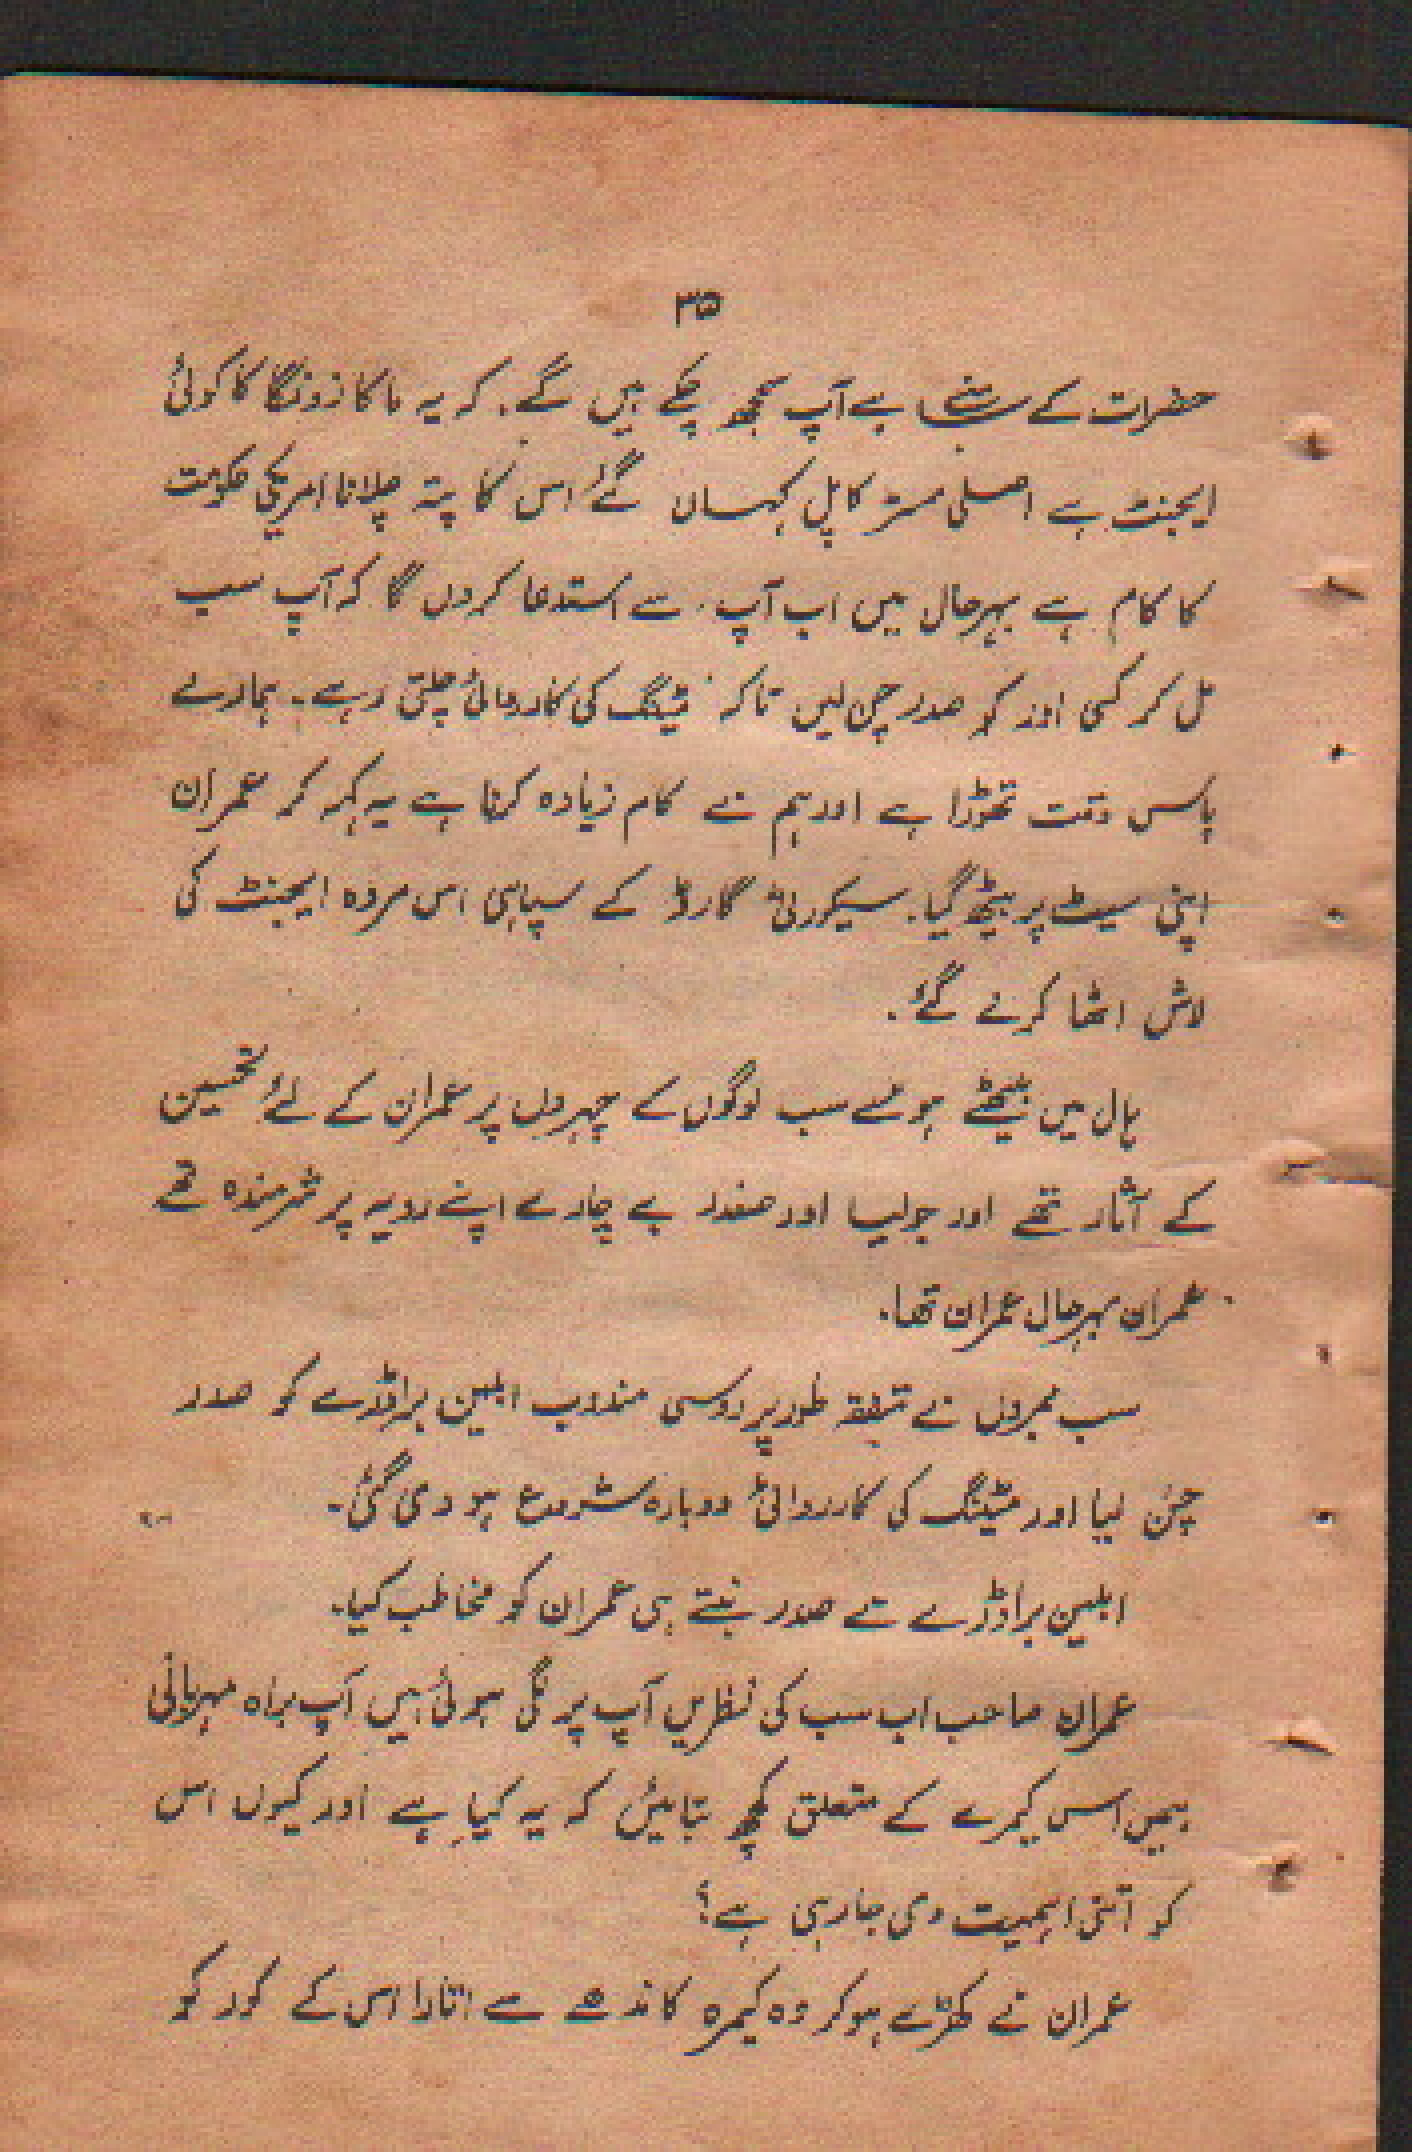 ۳۵
حضرات کے سامنے ہے آپ سمجھ چکے ہیں گے. کہ یہ ماکازونگا کا کوئی
ایجنٹ ہے اصلی مسٹر کاپل کہساں گئے اس کا پتہ چلانا امریکی حکومت
کا کام ہے بہرحال میں اب آپ. سے استدعا کروں گا کہ آپ سب
مل کر کسی اور کو صدر چن لیں تاکہ میٹنگ کی کاروائی چلتی رہے۔ ہمارے
پاس وقت تھوڑا ہے اور ہم نے کام زیادہ کرنا ہے یہ کہہ کر عمران
اپنی سیٹ پر بیٹھ گیا. سیکورٹی گارڈ کے سپاہی اس مردہ ایجنٹ کی
لاش اٹھا کرلے گئے.
ہال میں بیٹھے ہوئے سب لوگوں کے چہروں پر عمران کے لئے تحسین
کے آثار تھے اور جولیا اور صفدر بے چارے اپنے رویہ پر شرمندہ تھے
عمران بہرحال عمران تھا.
سب ممبروں نے متفقہ طور پر روسی مندوب ابلین براوڈرے کو صدر
چن لیا اور میٹنگ کی کارروائی دوبارہ شروع ہو دی گئی۔
ابلین براوڈرے نے صدر بنتے ہی عمران کو مخاطب کیا۔
عمران صاحب اب سب کی نظریں آپ پر لگی ہوئی ہیں آپ براہ مہربانی
ہمیں اس کیمرے کے متعلق کچھ بتائیں کہ یہ کیا ہے اور کیوں اس
کو اتنی اہمیت دی جارہی ہے؟
عمران نے کھڑے ہوکر وہ کیمرہ کاندھے سے اتارا اس کے کور کو